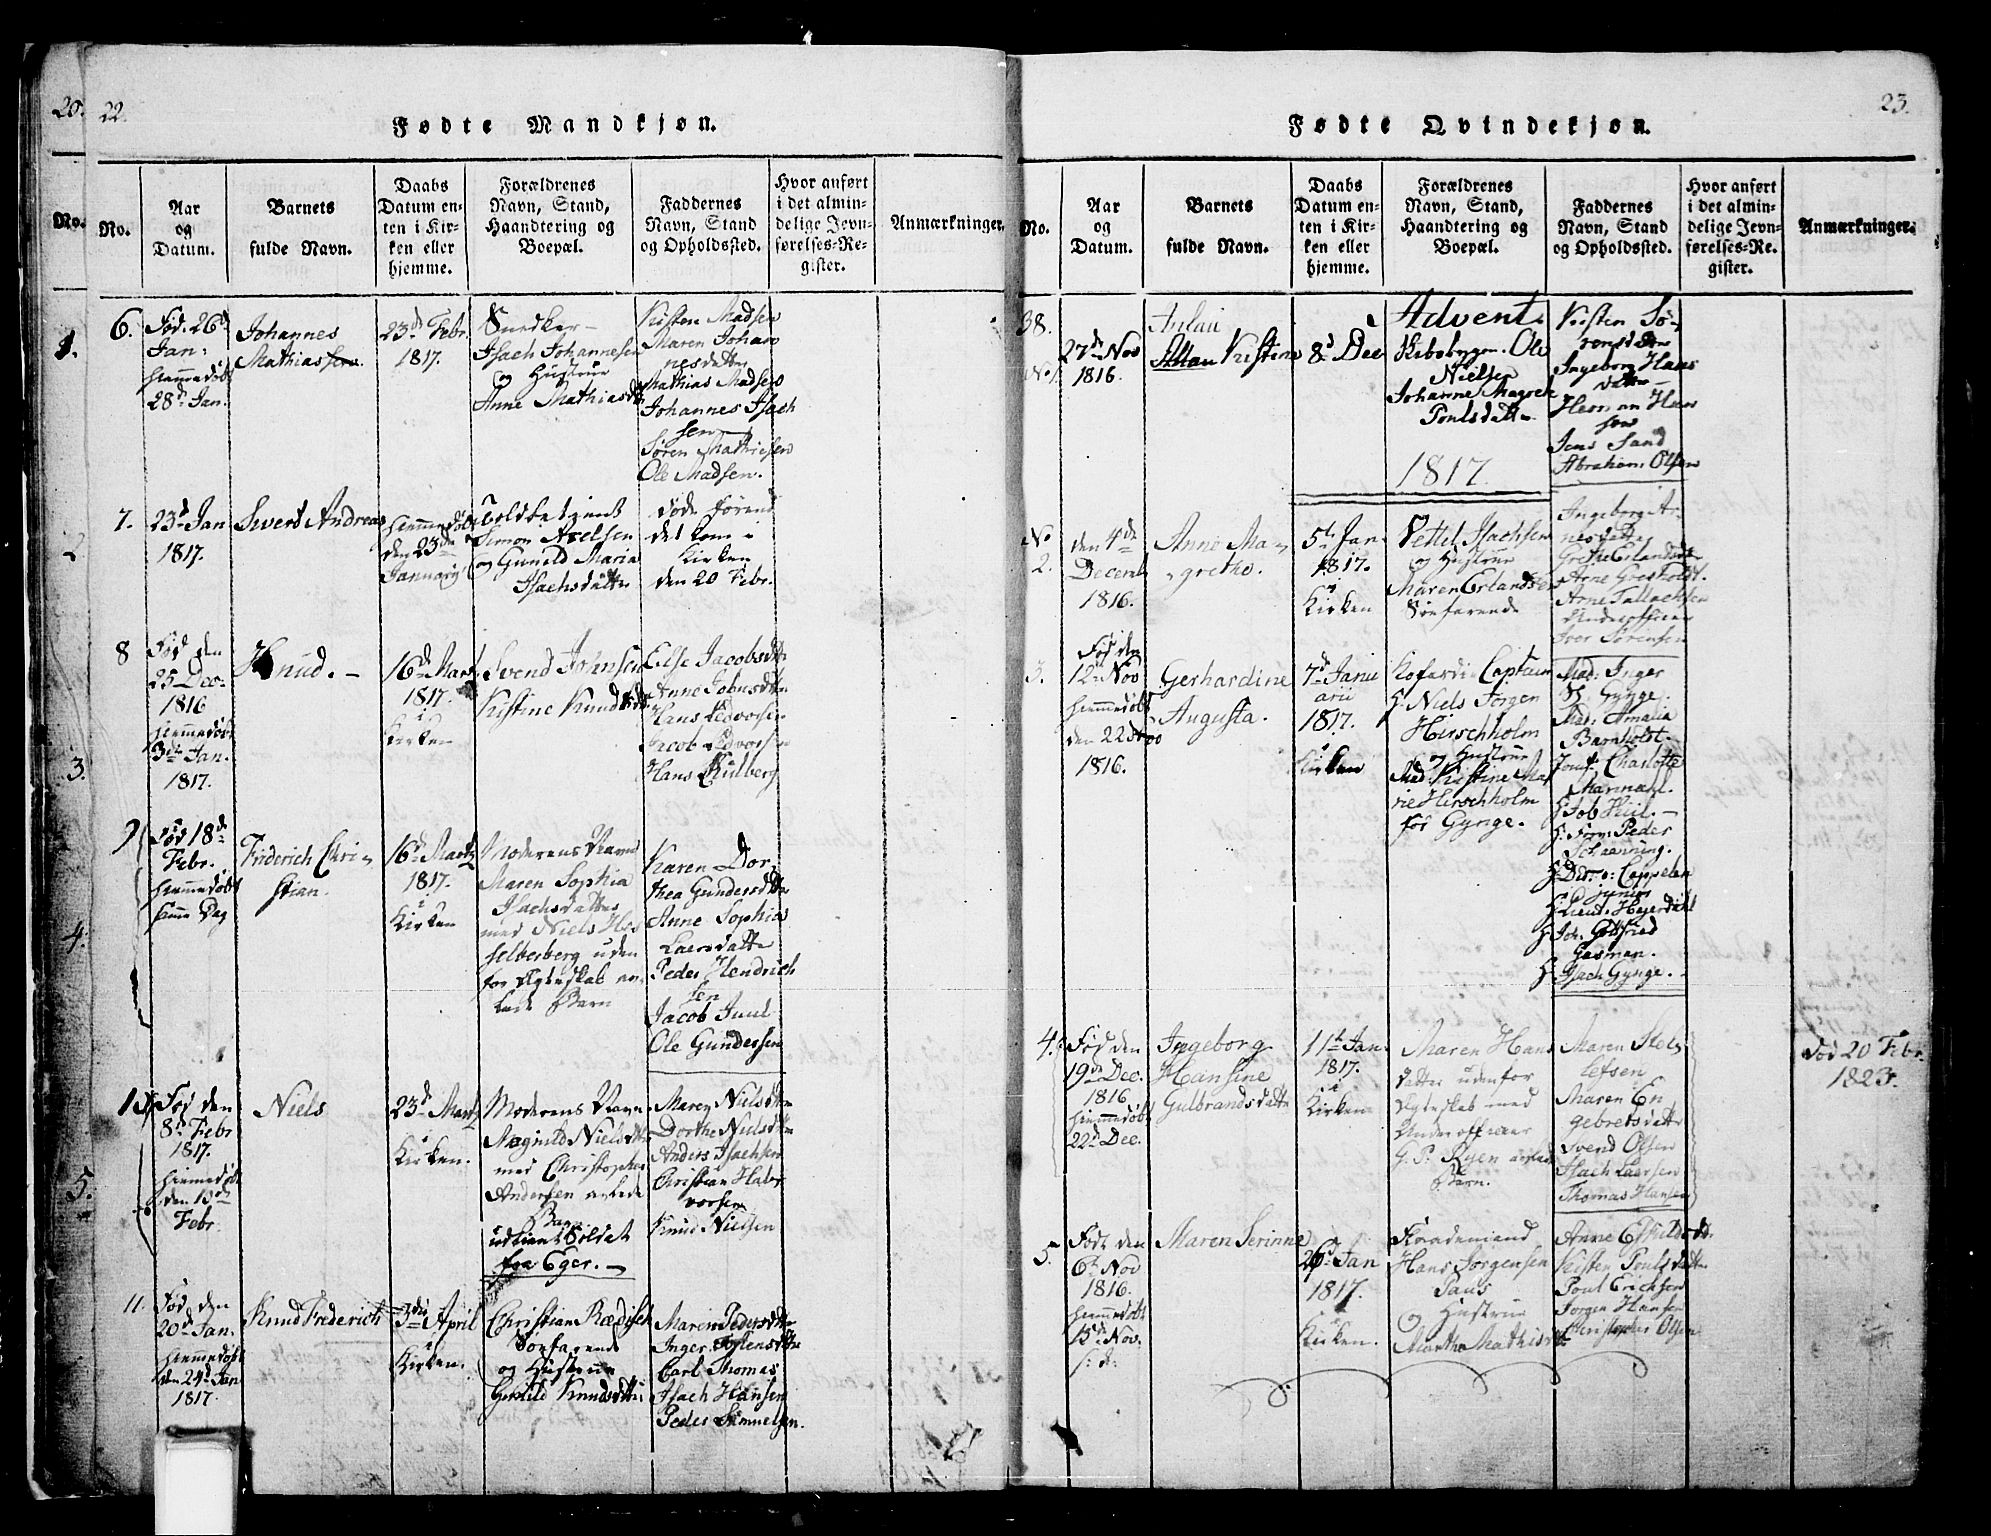 20.
22.
Fødte Mandkjøn.
No.
No.
Aar
og
Datum.
Barnets
fulde Navn.
Daabs
Datum en-
ten i Kir-
ken eller
hjemme.
Forældrenes
Navn, Stand,
Haandtering og
Boepæl.
Faddernes
Navn, Stand
og Opholdssted.
Hvor anført
i det almin-
delige Jevn-
førelses-Re-
gister.
Anmærkninger.
1.
2
3.
4.
5.
6.
Fød. 26d
Jan:
hiemmedøbt
28d Jan.
Johannes
Mathiassen
23d Febr.
1817.
Snedker
Isach Johannesen
og Hustrue
Anne Mathiasd
Kisten Madsen
Maren Johan
nesdatter
Mathias Madsen
Johannes Isach
sen
Søren Mathiesen
Ole Madsen.
7.
23d Jan
1817.
Sivert Andreas
hiemmedøbt
den 23de
January
Toldbetjent
Simon Axelsen
og Gunild Maria
Isachsdatter
døde førend
det kom i
Kirken
den 20 Febr.
8
Fød den
25 Dec.
1816
hiemmedøbt
3de Jan.
1817.
Knud.
16d Marts
1817.
i
Kirken
Svend Johnsen
Kistine Knudsd
Else Jacobsd
Anne Jobusd
Hans Ledvorsen
Jacob Ledvorsen
Hans Kulberg
9
Fød 18de
Febr.
hiemmedøbt
samme Dag
Friderich Chri-
stian.
16d Marts
1817.
i
Kirken
Moderens Navn
Maren Sophia
Isachsdatter
med Niels Hes
selberberg uden
for Ægteskab av-
lede Barn
Karen Dor-
thea Gundersd
Anne Sophia
Laersdatte
Peder Hendrich
sen
Jacob Juul
Ole Gundersen
10
Fød den
8d Febr
1817.
hiemmedøbt
den 10de
Febr.
Niels
23d Marts
i
Kirken.
Moderens Navn
Magnild Nielsd
med Christopher
Andersen avlede
Barn
udtient Soldat
fra Eger.
Maren Nielsd
Dorthe Nielsd
Anders Isachsen
Christian Halv
vorsen
Knud Nielsen
11.
Fød den
20d Jan.
hiemmedøbt
den 24d Jan
1817.
Knud Frederich
3die April
i
Kirken.
Christian Rædisch
Søefarende
og Hustrue
Gunild Knudsdtr
Maren Pedersd
Inger
Carl Thomas
Isach Hansen
Peder Samuelsen.
23.
Fødte Qvindekjøn.
No.
Aar
og
Datum.
Barnets
fulde Navn.
Daabs
Datum en-
ten i Kir-
ken eller
hjemme.
Forældrenes
Navn, Stand,
Haandtering og
Boepæl.
Faddernes
Navn, Stand
og Opholdssted.
Hvor anført
i det almin-
delige Jevn-
førelses-Re-
gister.
Anmærkninger.
38.
No 1.
27de Nov
1816.
Anlau
Allau Kistine
8d Dec
Advent.
Kebsbygn. Ole
Nielsen
Johanne Magreth
Poulsdatte
1817.
Kisten Sø-
rensdatter
Ingeborg Hans
datter
Herman Hans
sen
Jens Sand
Abraham Olsen
No
2.
den 4de
Decemb
1816.
Anne Ma-
grethe.
5te Jan
1817.
i
Kirken
Pettel Isachsen
og Hustrue
Maren Erlandsd
Søefarende
Ingeborg Ar-
nesdatte
Grethe Erlandsd
Arne Gresholdt.
Arne Tallachsen
Underofficeer
Iver Sørensen
3.
Fød den
12te Nov
hiemmedøbt
den 22de Nov
1816.
Gerhardine
Augusta.
7d Janu
arii
1817.
i
Kirken
Kofardie Captain
H. Niels Jørgen
Hirschholm
og Hustrue
Mad. Kistine Ma-
rie Hirschholm
fød Gynge.
Mad. Inger
Gynge.
Mad. Amalia
Barnholdt.
Jomf. Charlotte
Marmahl.
H. Job Hiul.
H. Jørg. Peder
Schanning.
H. Dir. v: Cappelen
junior
H. Lieut. Heyerdahl
H. Joh. Gotfried
Gasman.
H. Isach Gynge.
4.
Fød den
19de Dec.
1816
hiemmedøbt
22d Dec.
Ingeborg
Hansine
Gulbrandsdatter
11te Jan.
1817.
i
Kirken
Maren Hans
datter udenfor
Ægteskab med
Underofficeer
G. P. Ryen avlede
Barn.
Maren Stels
Lefsen
Maren En
gebretsdatte
Svend Olsen
Isach Laersen
Thomas Hansen
Død 20 Febr.
1823.
5.
Født den
6te Nov
1816.
hiemmedøbt
15de Nov.
Maren Serinne
26d Jan
1817.
i
Kirken.
Hans Jørgensen
Paus
og Hustrue
Marthe Mathisd
Anne Eskildsd.
Kisten Poulsdatte
Poul Ericksen
Jørgen Hansen
Christopher Olsen